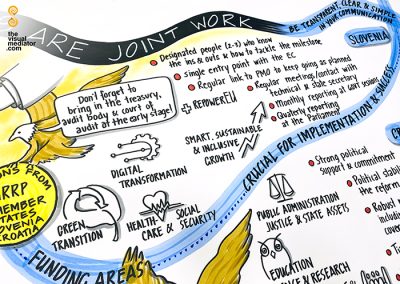 the
visual
mediator
.com
ARE JOINT WORK
BE TRANSPARENT, CLEAR & SIMPLE
IN YOUR COMMUNICATION
SLOVENIA
Designated people (2-3) who know
the ins & outs & how to tackle the milestone
single entry point with the EC
Regular link to PMO to keep going as planned
+ REPOWEREU
Regular meeting/contact with
technical & state secretary
Monthly reporting at
Quarterly reporting
at the Parliament
Don't forget to
bring in the treasury,
audit body & court of
audit at the early stage!
SMART, SUSTAINABLE
& INCLUSIVE
GROWTH
DIGITAL
TRANSFORMATION
CRUCIAL FOR IMPLEMENTATION & SUCCESS
FROM
RRP
MEMBER
STATES
SLOVENIA
CROATIA
GREEN
TRANSITION
HEALTH-
CARE &
SOCIAL
SECURITY
FUNDING AREAS
PUBLIC ADMINISTRATION
JUSTICE & STATE ASSETS
EDUCATION
& RESEARCH
Strong political
support & commitment
Political
the reform
Robust
cove